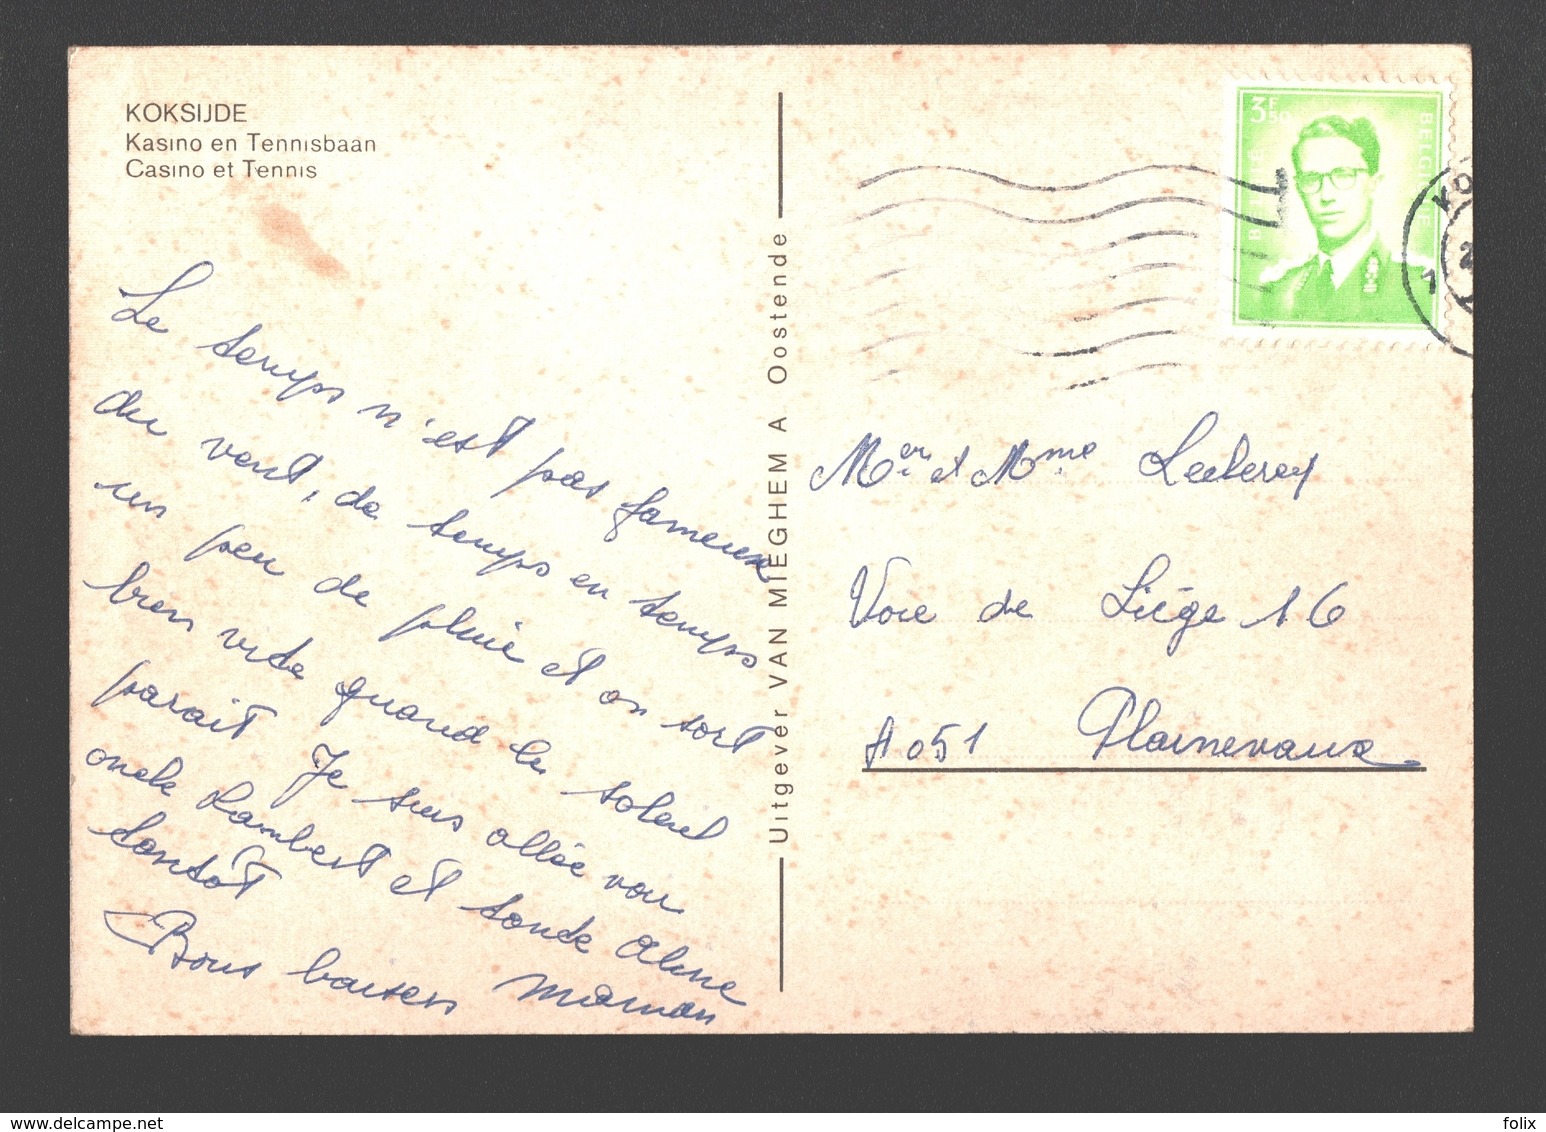 KOKSIJDE
Kasino en Tennisbaan
Casino et Tennis
Le temps n'est pas fameux
du vent, de temps en temps
un peu de pluie et on sort
bien vite quand le soleil
parait Je suis allée voir
oncle Lambert et tante Aline
tantôt
Bons baisers Maman
Uitgever VAN MIEGHEM A Oostende
3F50
BELGIË
BELGIQUE
KO
2
1
Mer et Mme Leclercq
Voie de Liége 16
4051 Plainevaux
folix